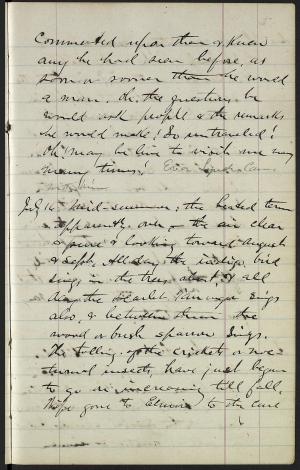 Commented upon them & knew
any he had seen before, as
soon or sooner than he would
a man. Oh, the questions he
would ask people & the remarks
he would make! So untraveled!
Oh! may he live to visit me very
many times!
July 16 Mid-summer; the heated term
apparently over – the air clear
& pure & looking toward August
& Sept. All day the indigo bird
sings in the trees about, & all
day the scarlet tanager sings
also, & between them the
wood or bush sparrow sings.
The telling of the crickets or noc-
turnal insects, have just begun
to go on increasing till fall.
Wife gone to Elmira to the cure